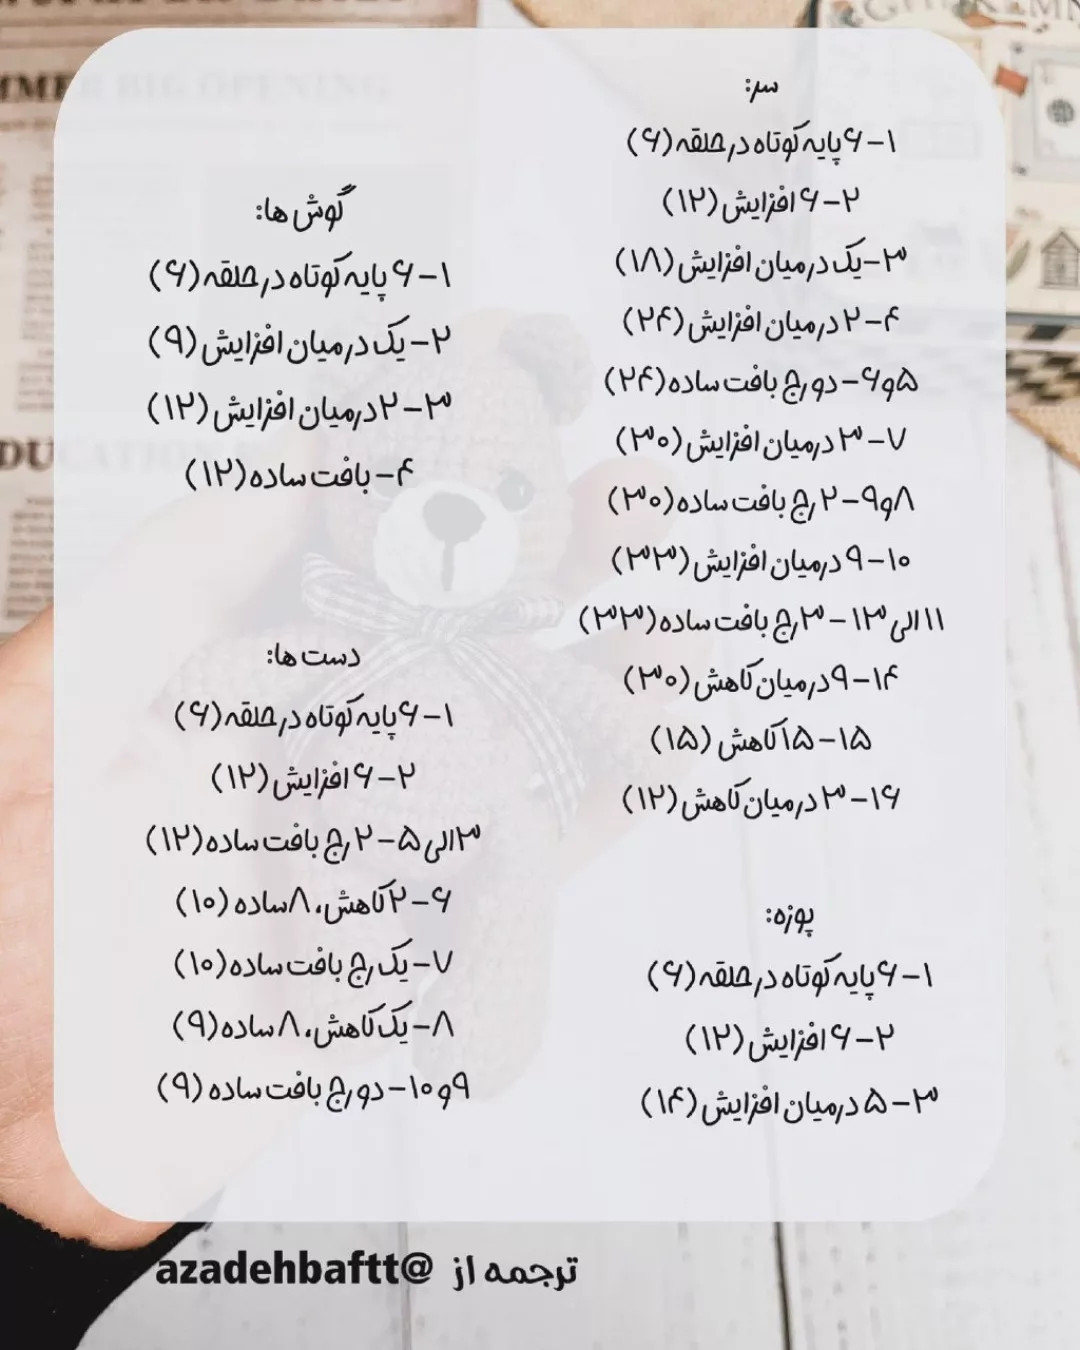 سر:
۱-۶ پایه کوتاه در حلقه (۶)
۲-۶ افزایش (۱۲)
۳-یک در میان افزایش (۱۸)
۴-۲ در میان افزایش (۲۴)
۵و۶-دو رج بافت ساده (۲۴)
۷-۳ در میان افزایش (۳۰)
۸و۹-۲ رج بافت ساده (۳۰)
۱۰-۹ در میان افزایش (۳۳)
۱۱ الی ۱۳-۳ رج بافت ساده (۳۳)
۱۴-۹ در میان کاهش (۳۰)
۱۵-۱۵ کاهش (۱۵)
۱۶-۳ در میان کاهش (۱۲)
پوزه:
۱-۶ پایه کوتاه در حلقه (۶)
۲-۶ افزایش (۱۲)
۳-۵ در میان افزایش (۱۴)
گوش ها:
۱-۶ پایه کوتاه در حلقه (۶)
۲-یک در میان افزایش (۹)
۳-۲ در میان افزایش (۱۲)
۴-بافت ساده (۱۲)
دست ها:
۱-۶ پایه کوتاه در حلقه (۶)
۲-۶ افزایش (۱۲)
۳ الی ۵-۲ رج بافت ساده (۱۲)
۶-۲ کاهش، ۸ ساده (۱۰)
۷-یک رج بافت ساده (۱۰)
۸-یک کاهش، ۸ ساده (۹)
۹و۱۰-دو رج بافت ساده (۹)
ترجمه از @azadehbaftt